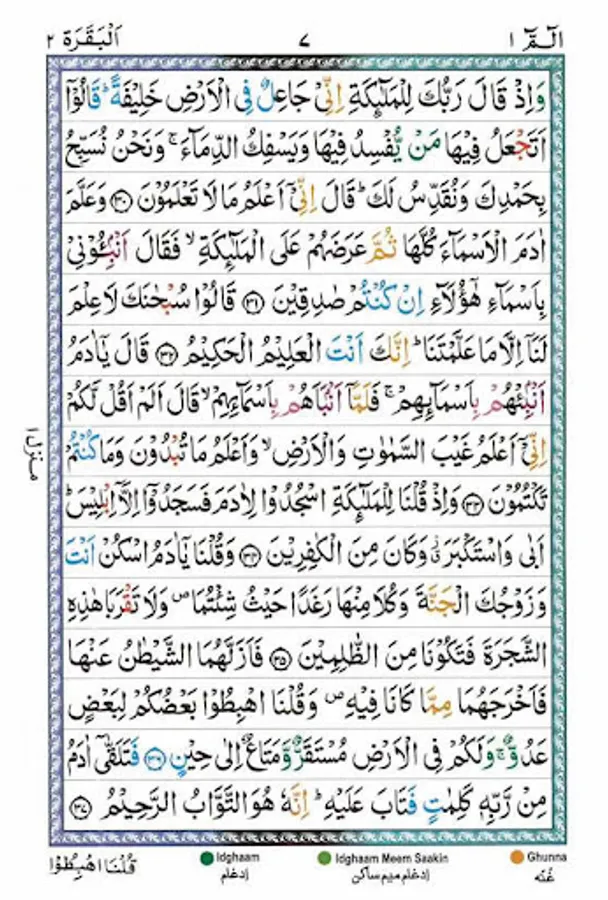 الٓمّٓ ١ ٧ اَلْبَقَرَة ٢
وَاِذْ قَالَ رَبُّكَ لِلْمَلٰٓئِكَةِ اِنِّىْ جَاعِلٌ فِى الْاَرْضِ خَلِيْفَةً ؕ قَالُوْٓا
اَتَجْعَلُ فِيْهَا مَنْ يُّفْسِدُ فِيْهَا وَيَسْفِكُ الدِّمَآءَ ۚ وَنَحْنُ نُسَبِّحُ
بِحَمْدِكَ وَنُقَدِّسُ لَكَ ؕ قَالَ اِنِّىْٓ اَعْلَمُ مَا لَا تَعْلَمُوْنَ ﴿٣٠﴾ وَعَلَّمَ
اٰدَمَ الْاَسْمَآءَ كُلَّهَا ثُمَّ عَرَضَهُمْ عَلَى الْمَلٰٓئِكَةِ ۙ فَقَالَ اَنْۢبِـُٔوْنِىْ
بِاَسْمَآءِ هٰٓؤُلَآءِ اِنْ كُنْتُمْ صٰدِقِيْنَ ﴿٣١﴾ قَالُوْا سُبْحٰنَكَ لَا عِلْمَ
لَنَآ اِلَّا مَا عَلَّمْتَنَا ؕ اِنَّكَ اَنْتَ الْعَلِيْمُ الْحَكِيْمُ ﴿٣٢﴾ قَالَ يٰٓاٰدَمُ
اَنْۢبِئْهُمْ بِاَسْمَآئِهِمْ ۚ فَلَمَّآ اَنْۢبَاَهُمْ بِاَسْمَآئِهِمْ ۙ قَالَ اَلَمْ اَقُلْ لَّكُمْ
اِنِّىْٓ اَعْلَمُ غَيْبَ السَّمٰوٰتِ وَالْاَرْضِ ۙ وَاَعْلَمُ مَا تُبْدُوْنَ وَمَا كُنْتُمْ
تَكْتُمُوْنَ ﴿٣٣﴾ وَاِذْ قُلْنَا لِلْمَلٰٓئِكَةِ اسْجُدُوْا لِاٰدَمَ فَسَجَدُوْٓا اِلَّآ اِبْلِيْسَ ؕ
اَبٰى وَاسْتَكْبَرَ ٭ۗ وَكَانَ مِنَ الْكٰفِرِيْنَ ﴿٣٤﴾ وَقُلْنَا يٰٓاٰدَمُ اسْكُنْ اَنْتَ
وَزَوْجُكَ الْجَنَّةَ وَكُلَا مِنْهَا رَغَدًا حَيْثُ شِئْتُمَا ۪ وَلَا تَقْرَبَا هٰذِهِ
الشَّجَرَةَ فَتَكُوْنَا مِنَ الظّٰلِمِيْنَ ﴿٣٥﴾ فَاَزَلَّهُمَا الشَّيْطٰنُ عَنْهَا
فَاَخْرَجَهُمَا مِمَّا كَانَا فِيْهِ ۪ وَقُلْنَا اهْبِطُوْا بَعْضُكُمْ لِبَعْضٍ
عَدُوٌّ ۚ وَلَكُمْ فِى الْاَرْضِ مُسْتَقَرٌّ وَّمَتَاعٌ اِلٰى حِيْنٍ ﴿٣٦﴾ فَتَلَقّٰٓى اٰدَمُ
مِنْ رَّبِّهٖ كَلِمٰتٍ فَتَابَ عَلَيْهِ ؕ اِنَّهٗ هُوَ التَّوَّابُ الرَّحِيْمُ ﴿٣٧﴾
منزل ١
Ghunna Idghaam Meem Saakin Idghaam قُلْنَا اهْبِطُوْا
غُنّه ادغام میم ساکن ادغام